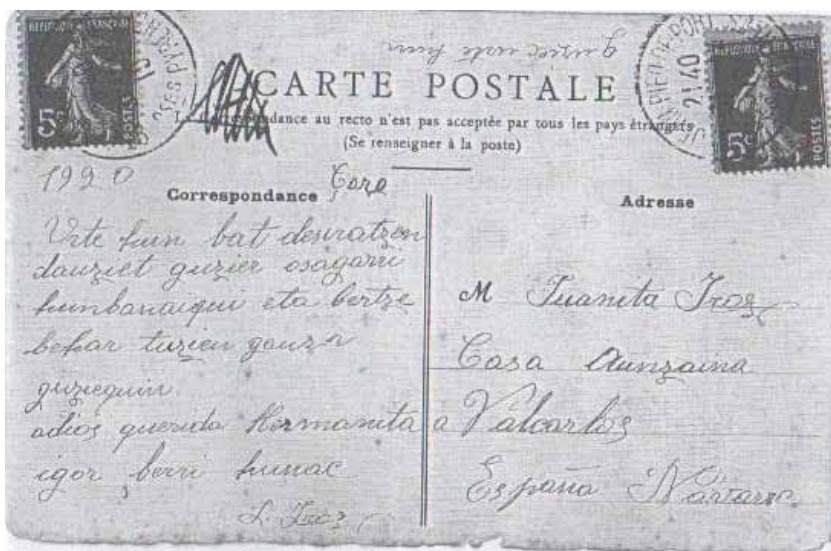 CARTE POSTALE
La Correspondance au recto n'est pas acceptée par tous les pays étrangers
(Se renseigner à la poste)
1920
Correspondance
Adresse
Urte hun bat desiratzen
dauziet guzier osagarri
hunbanaiqui eta bertze
behar tuzien gauza
guziequin
adios querida Hermanita
igor berri hunac
M Juanita Iroz
Casa Aunzaina
a Valcarlos
España Navarra
5c
POSTES
5c
POSTES